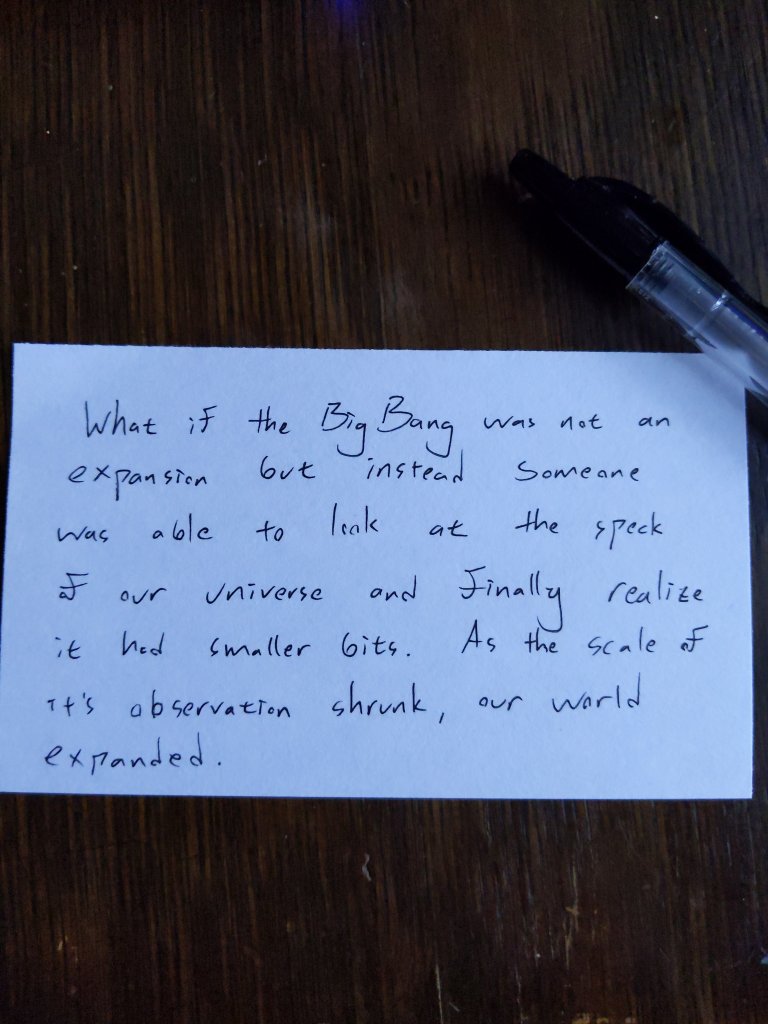 What if the Big Bang was not an
expansion but instead someone
was able to look at the speck
of our universe and finally realize
it had smaller bits. As the scale of
it's observation shrunk, our world
expanded.